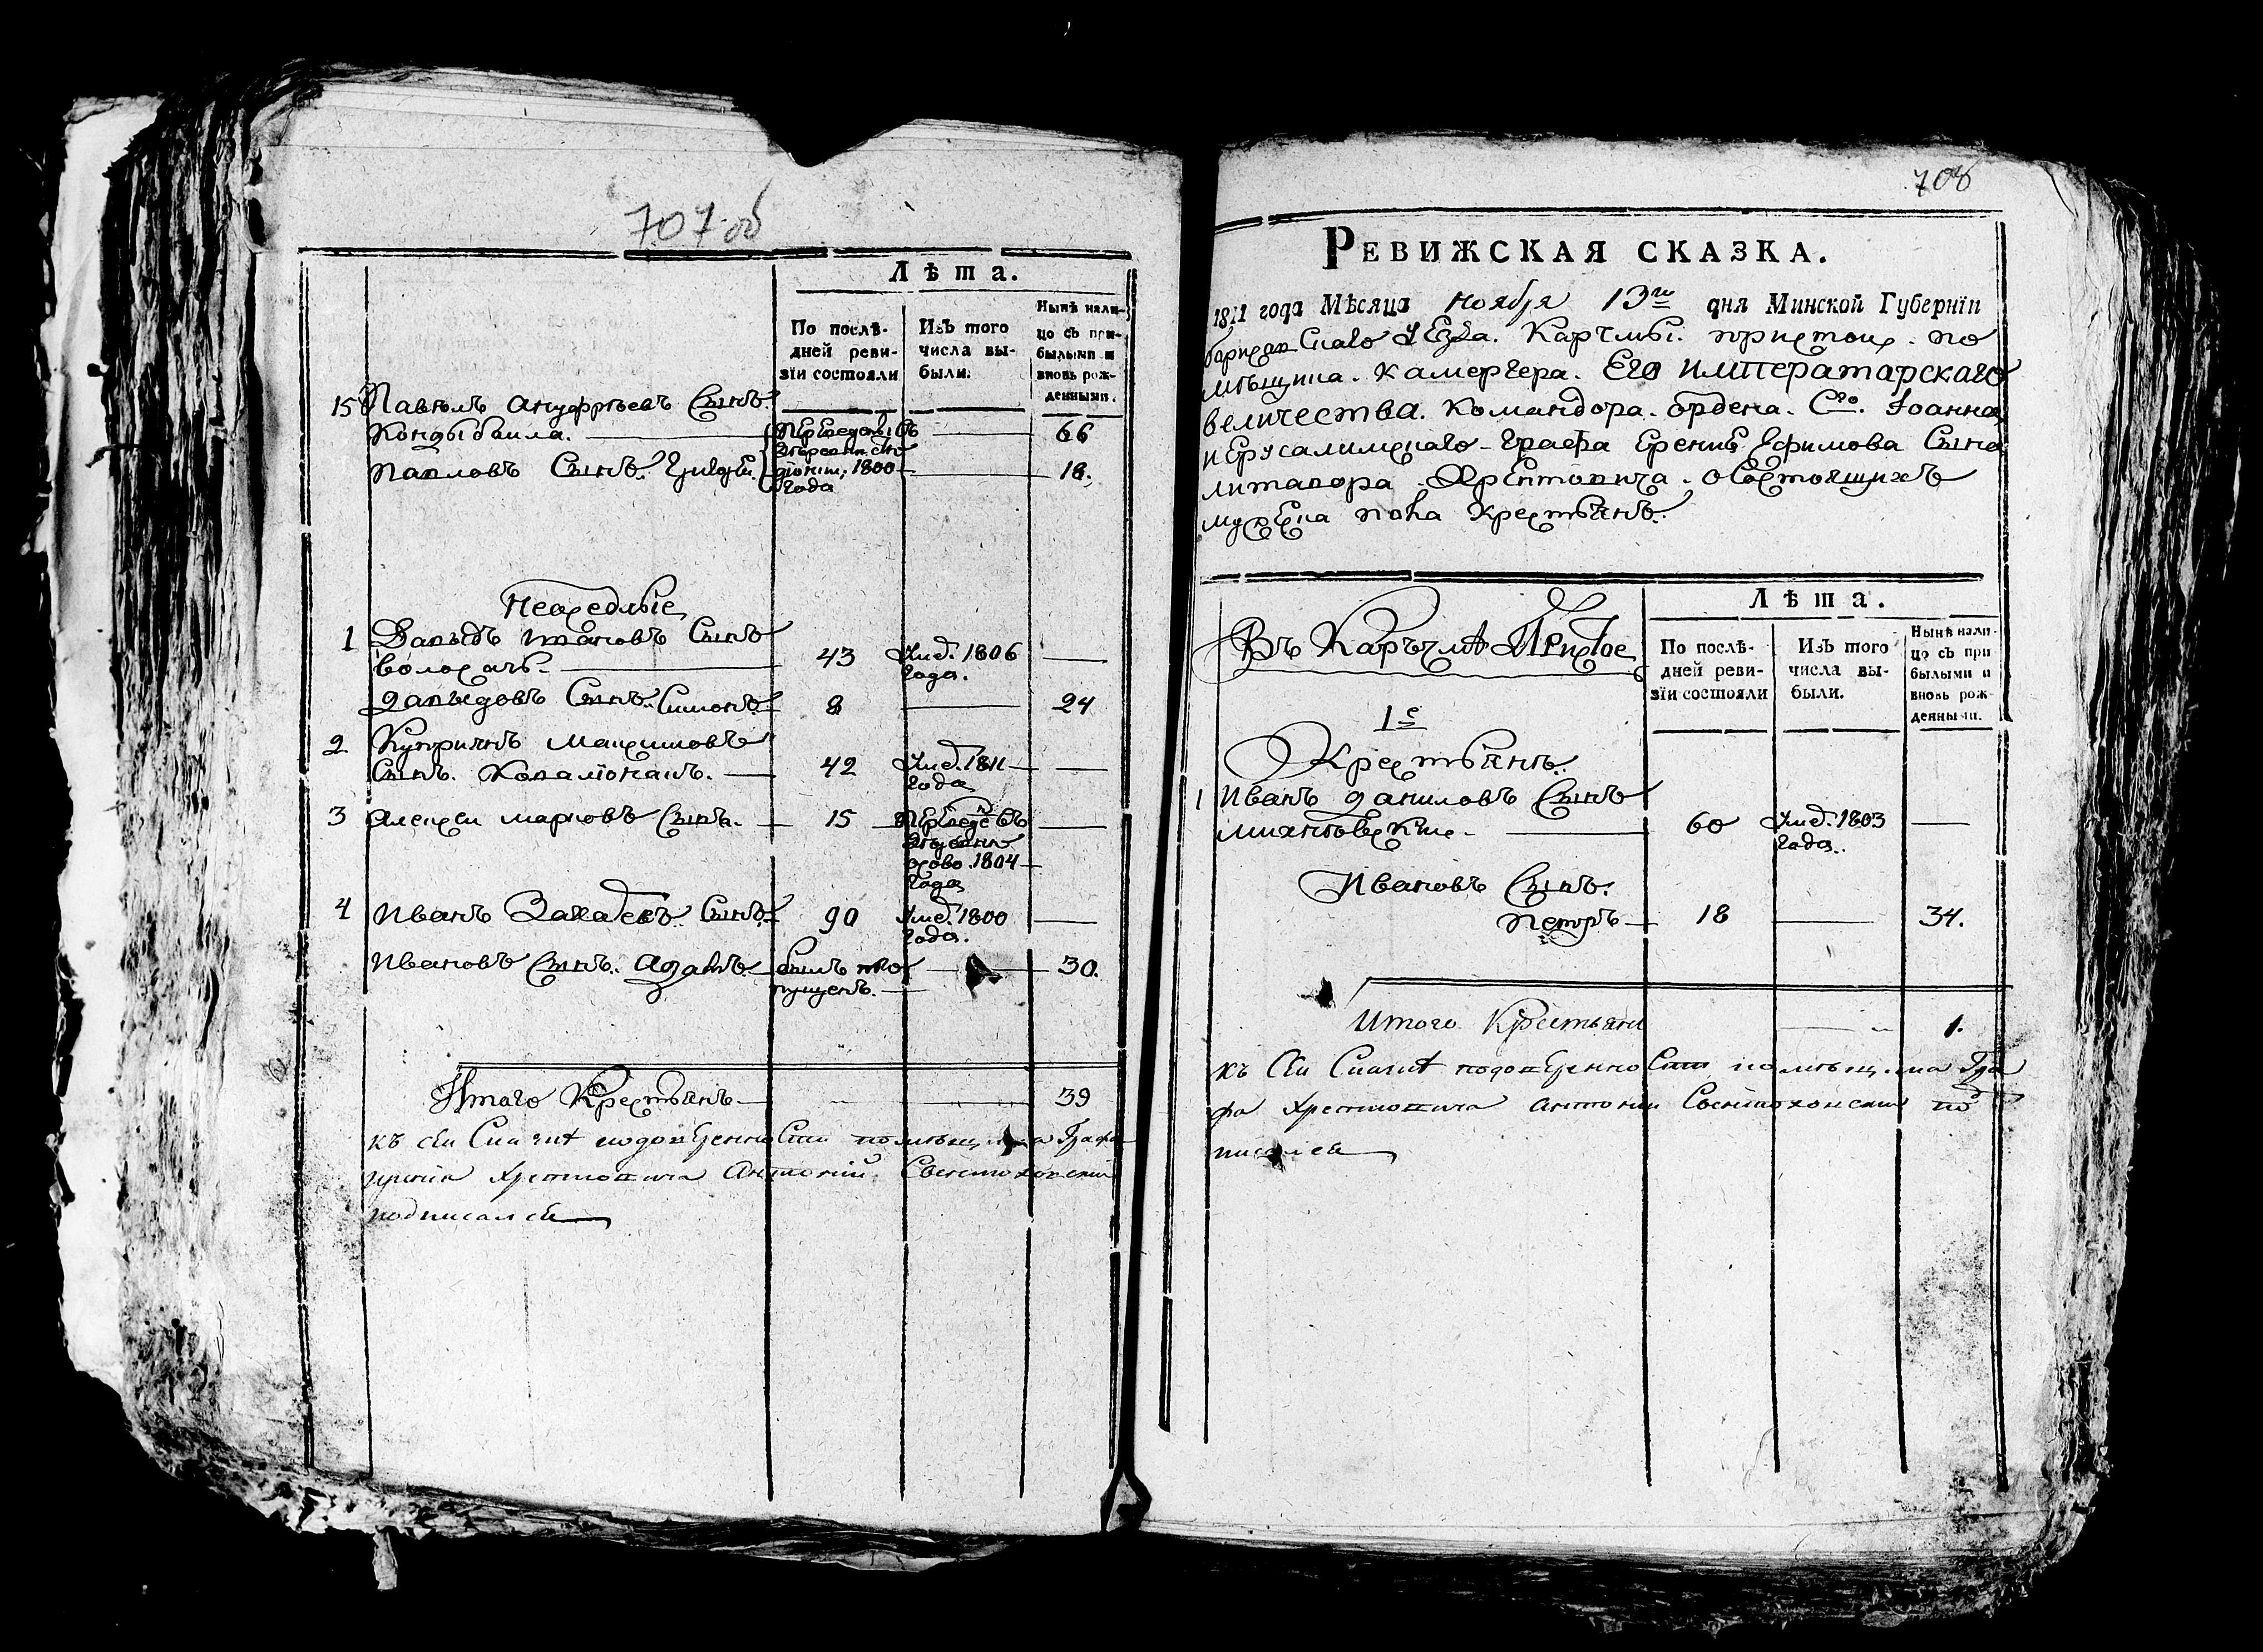 707 об
Лѣта.
По послѣ-
дней реви-
зіи состояли
Изъ того
числа вы-
были.
Нынѣ нали-
цо съ при-
былыми и
вновь рож-
денными.
15 Павелъ Ануфріевъ Сынъ
66
Павловъ Сынъ 18.
1800
года
Неоседлые
1 Давыдъ Сынъ
43 Умер. 1806
года.
Давыдовъ Сынъ Симонъ 8 24
2 Купріянъ Максимовъ
Сынъ. 42 Умер. 1811
года
3 Алексей Марковъ Сынъ. 15
1804
года
4 Иванъ Сынъ 90 Умер. 1800
года.
Ивановъ Сынъ. Адамъ былъ про 30.
пущенъ.
Итого Крестьянъ 39
къ сей Сказкѣ подоверенности помѣщика Графа
Хрептовича Антоній
подписался
708
Ревижская сказка.
1811 года Мѣсяца ноября 13го дня Минской Губерніи
Скаго Уезда. Карчмы. по
мѣщика. Камергера. Его Императарскаго
величества. Командора. ордена. Сго. Іоанна
иерусалимскаго Графа Ефимова Сына
литавора Хрептовича о Состоящихъ
мужеска пола Крестьянъ.
Лѣта.
По послѣ-
дней реви-
зіи состояли
Изъ того
числа вы-
были.
Нынѣ нали-
цо съ при
былыми и
вновь рож-
денными.
Въ Каръчмѣ
1е
Крестьянъ.
1 Иванъ Даниловъ Сынъ
60 Умер. 1803
года.
Ивановъ Сынъ.
Петръ 18 34.
Итого Крестьянъ 1.
къ Сей Сказкѣ подоверенности помѣщика Гра
фа Хрептовича Антоній под
писался